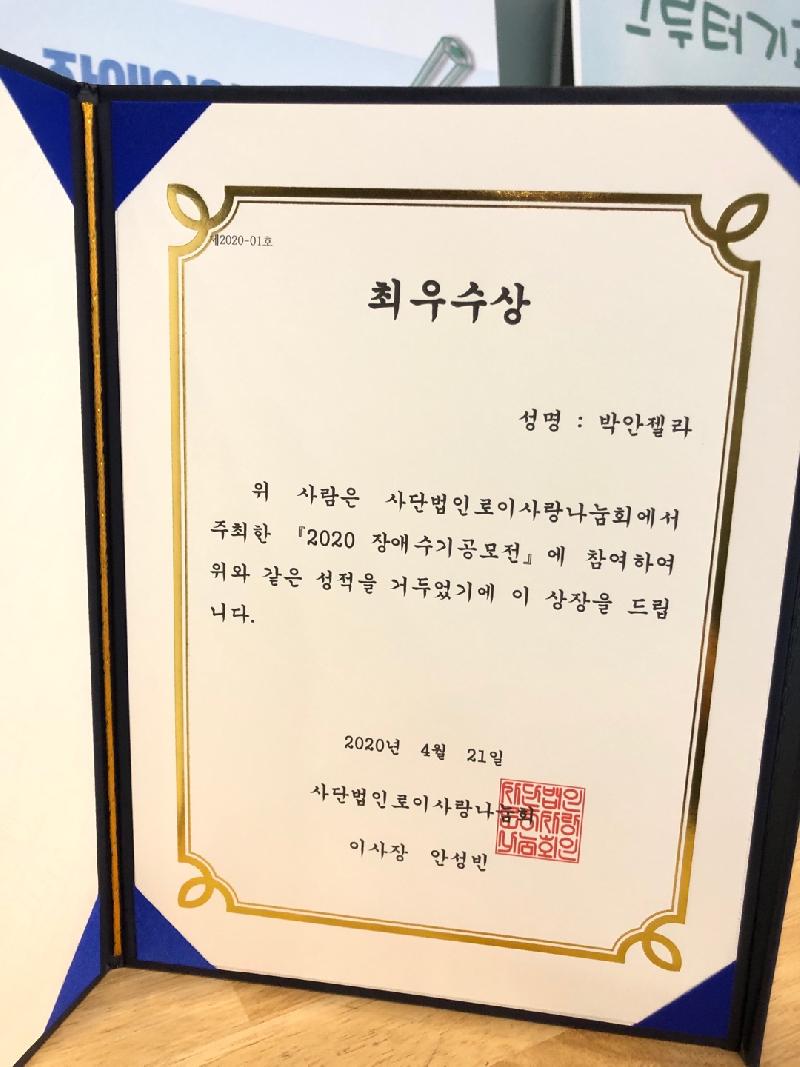 그루터기
제2020-01호
최우수상
성명 : 박안젤라
위 사람은 사단법인로이사랑나눔회에서
주최한 『2020 장애수기공모전』에 참여하여
위와 같은 성적을 거두었기에 이 상장을 드립
니다.
2020년 4월 21일
사단법인로이사랑나눔회
이사장 안성빈